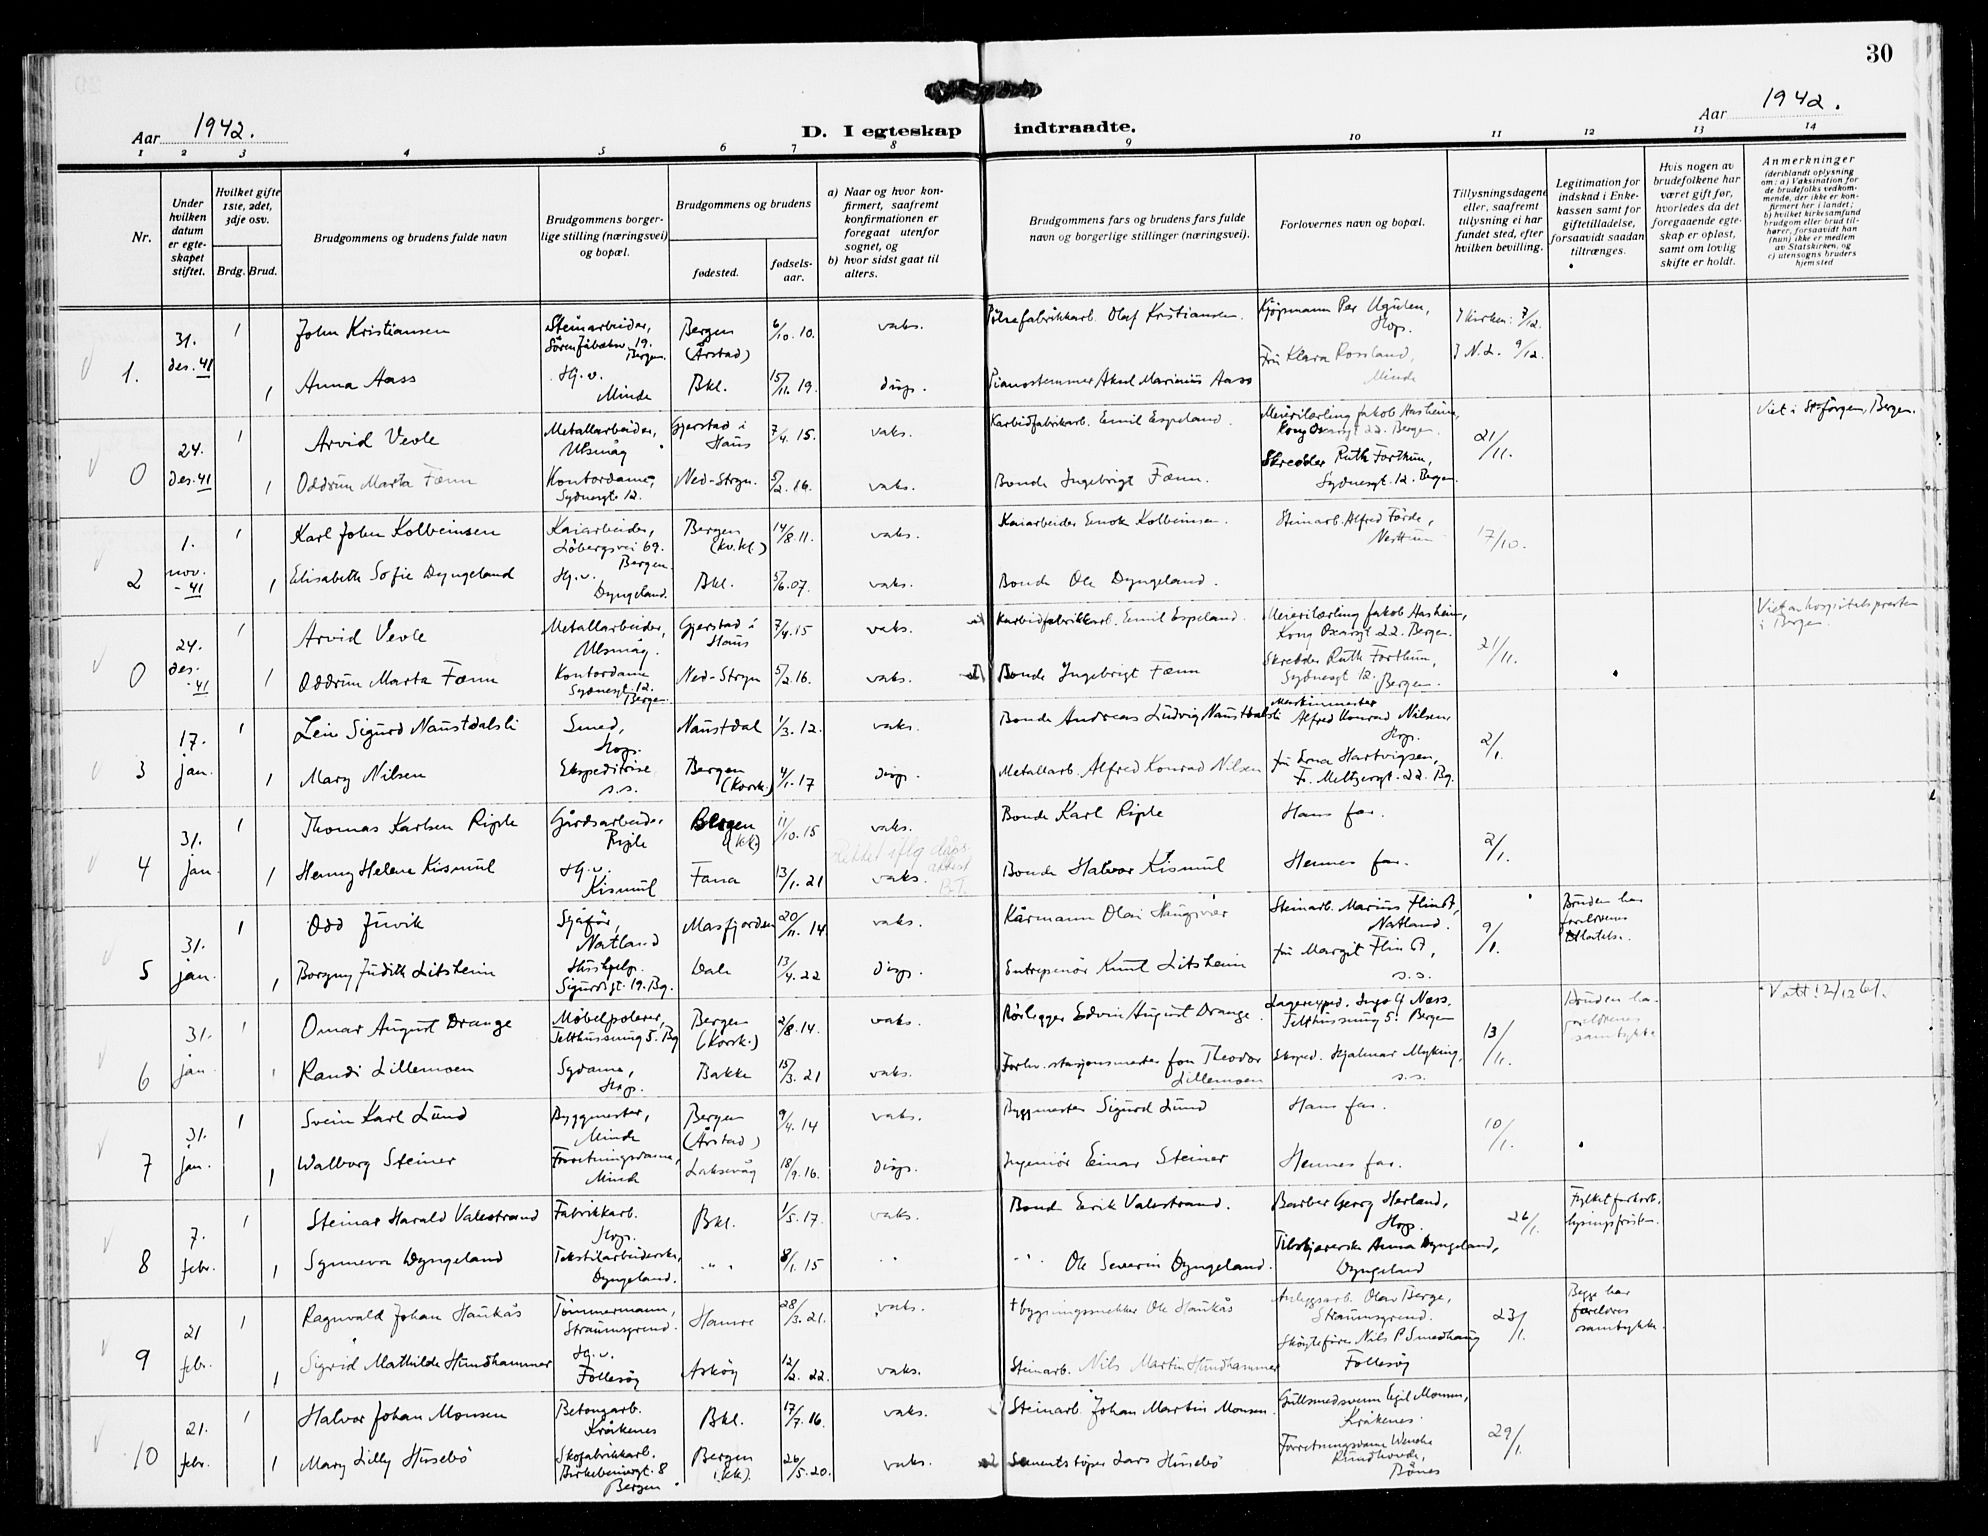 30
Aar 1942.
D. I egteskap indtraadte.
Aar 1942.
1 2 3 4 5 6 7 8 9 10 11 12 13 14
Nr.
Under hvilken datum er egteskapet stiftet.
Hvilket gifte 1ste, 2det, 3dje osv.
Brdg. Brud.
Brudgommens og brudens fulde navn
Brudgommens borgerlige stilling (næringsvei) og bopæl.
Brudgommens og brudens
fødested.
fødselsaar.
a) Naar og hvor konfirmert, saafremt konfirmationen er foregaat utenfor sognet, og
b) hvor sidst gaat til alters.
Brudgommens fars og brudens fars fulde navn og borgerlige stillinger (næringsvei).
Forlovernes navn og bopæl.
Tillysningsdagene eller, saafremt tillysning ei har fundet sted, efter hvilken bevilling.
Legitimation for indskud i Enkekassen samt for giftetilladelse, forsaavidt saadan tiltrænges.
Hvis nogen av brudefolkene har været gift før, hvorledes da det foregaaende egteskap er opløst, samt om lovlig skifte er holdt.
Anmerkninger
(deriblandt oplysning om: a) Vaksination for de brudefolks vedkommende, der ikke er konfirmert her i landet; b) hvilket kirkesamfund brudgom eller brud tilhører, forsaavidt han (hun) ikke er medlem av Statskirken, og c) utensogns bruders hjemsted
1. 31. des. 41 1 John Kristiansen Steinarbeider, Bergen. Bergen (Årstad) 6/10.10. vaks. Pölsefabrikkarb. Olaf Kristiansen. Kjøpmann Per Ugulen, Hop. I kirken: 7/12.
1 Anna Aass Hg.v. Minde Bkl. 15/11.19. disp. Pianostemmer Aksel Marinius Aass Fru Klara Rossland, Minde I N.L. 9/12.
0 24. des. 41 1 Arvid Vevle Metallarbeider, Ulsmåg Gjerstad i Haus 7/4.15. vaks. Karbidfabrikkarb. Emil Espeland. Meierilærling Jakob Aasheim, Kong Oscarsgt 22. Bergen. 21/11. Viet i St. Jørgen, Bergen.
1 Oddrun Marta Fænn Kontordame, Sydnesgt 12. Ned-Stryn. 5/2.16. vaks. Bonde Ingebrigt Fænn. Skredder Ruth Forthun, Sydnesgt. 12. Bergen.
2 1. nov. -41 1 Karl John Kolbeinsen Kaiarbeider, Löbergsvei 69. Bergen Bergen (kv.kl.) 14/8.11. vaks. Kaiarbeider Enok Kolbeinsen. Steinarb. Alfred Förde, Nesttun 17/10.
1 Elisabeth Sofie Dyngeland Hg.v. Dyngeland. Bkl. 5/6.07. vaks. Bonde Ole Dyngeland.
0 24. des. -41 1 Arvid Vevle Metallarbeider, Ulsmåg. Gjerstad i Haus 7/4.15 vaks. Karbidfabrikkarb. Emil Espeland. Meierilærling Jakob Aasheim, Kong Oscarsgt 22. Bergen. 21/11. Viet av hospitalspresten i Bergen.
1 Oddrun Marta Fænn Kontordame Sydnesgt 12. Bergen Ned-Stryn 5/2.16. vaks. Bonde Ingebrigt Fænn Skredder Ruth Forthun, Sydnesgt 12. Bergen.
3 17. jan. 1 Leiv Sigurd Naustdalsli Smed, Hop. Naustdal 1/3.12. vaks. Bonde Andreas Ludvig Naustdalsli Maskinmester Alfred Konrad Nilsen, Hop. 2/1.
1 Mary Nilsen Ekspeditrise s.s. Bergen (Korsk.) 4/1.17 disp. Metallarb. Alfred Konrad Nilsen fru Erna Hartvigsen, F. Meltzersgt. 22. Bg.
4 31. jan. 1 Thomas Karlsen Riple Gårdsarbeider Riple Bergen (kk) 11/10.15 vaks. Bonde Karl Riple Hans far. 2/1.
Rettet iflg dåpsattest
1 Henny Helene Kismul Hg.v. Kismul Fana 13/1.21 vaks. Bonde Halvor Kismul Hennes far.
5 31. jan. 1 Odd Juvik Sjåför, Natland Masfjorden 20/11.14 vaks. Kårmann Olai Haugsvær Steinarb. Marius Flindt, Natland. 9/1. Bruden har foreldrenes tillatelse.
1 Borgny Judith Litsheim Hushjelp Sigurdsgt. 19. Bg. Dale 13/4.22 disp. Entreprenör Knut Litsheim fru Margit Flindt, s.s.
6 31. jan. 1 Omar August Drange Möbelpolerer, Telthussmug 5. Bg Bergen (Korsk.) 2/8.14. vaks. Rörlegger Edvin August Drange. Lagereksped. Inga G Næss. Telthussmug 5. Bergen 13/11. Bruden har foreldrenes samtykke Vatt. 12/12 61.
1 Randi Lillemoen Sydame, Hop. Bakke 15/3.21 vaks. Forhv. stasjonsmester Jon Theodor Lillemoen Eksped. Hjalmar Myking, s.s.
7 31. jan. 1 Svein Karl Lund Byggmester, Minde Bergen (Årstad) 9/4.14 vaks. Byggmester Sigurd Lund Hans far. 10/1.
1 Walborg Steiner Forretningsdame, Minde Laksevåg 18/9.16. disp. Ingeniör Einar Steiner Hennes far.
8 7. febr. 1 Steinar Harald Valestrand Fabrikkarb. Hop. Bkl. 1/5.17. vaks. Bonde Eirik Valestrand. Barber Georg Herland, Hop. 26/1. Fylket forkort. lysingsfristen.
1 Synneva Dyngeland Tekstilarbeiderske, Dyngeland. " " 8/1.15 " " " Ole Severin Dyngeland. Tilskjærerske Anna Dyngeland, Dyngeland
9 21 febr. 1 Ragnvald Johan Haukås Tömmermann, Straumsgrend. Hamre 28/3.21. vaks. † bygningssnekker Ole Haukås Anleggsarb. Olav Berge, Straumsgrend. 23/1. Begge har foreldres samtykke.
1 Sigrid Mathilde Hundhammer Hg.v. Follesöy Asköy 12/2.22. vaks. Steinarb. Nils Martin Hundhammer Sköyteförer Nils P Smedhaug Follesöy
10 21. febr. 1 Halvor Johan Monsen Betongarb. Kråkenes Bkl. 17/7.16. vaks. Steinarb. Johan Martin Monsen. Gullsmedsvenn Egil Monsen, Kråkenes. 29/1.
1 Mary Lilly Husebö Skofabrikkarb. Birkebeinersgt. 8 Bergen Bergen (kk). 26/5.20. vaks. Sementstöper Lars Husebö Forretningsdame Wenche Rundhovde, Bönes